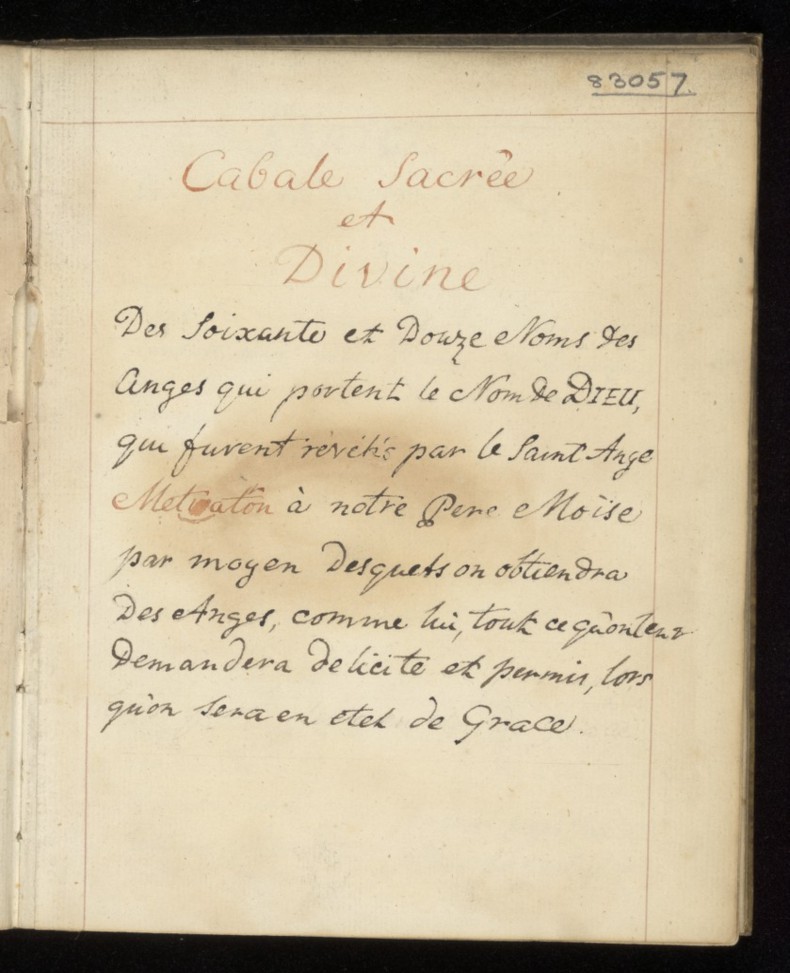 83057
Cabale Sacrée
et
Divine
Des Soixante et Douze Noms des
Anges qui portent le Nom de DIEU,
qui furent révélés par le Saint Ange
Metraton à notre Pere Moïse
par moyen desquels on obtiendra
des Anges, comme lui, tout ce qu'on leur
demandera de licite et permis, lors
qu'on sera en etet de Grace.